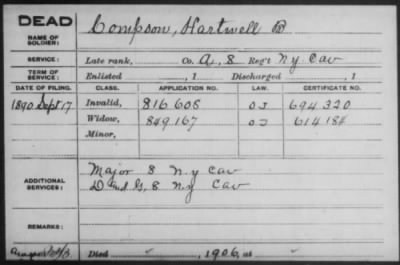 DEAD
NAME OF SOLDIER: Compson, Hartwell B
SERVICE: Late rank, Co. A, 8 Reg't N.Y. Cav
TERM OF SERVICE: Enlisted , 1 Discharged , 1
DATE OF FILING. CLASS. APPLICATION NO. LAW. CERTIFICATE NO.
1890 Sept 17 Invalid, 816608 694320
Widow, 849.167 614184
Minor,
ADDITIONAL SERVICES: Major 8 N.Y Cav
D and G, 8 N.Y Cav
REMARKS:
Died , 1906, at